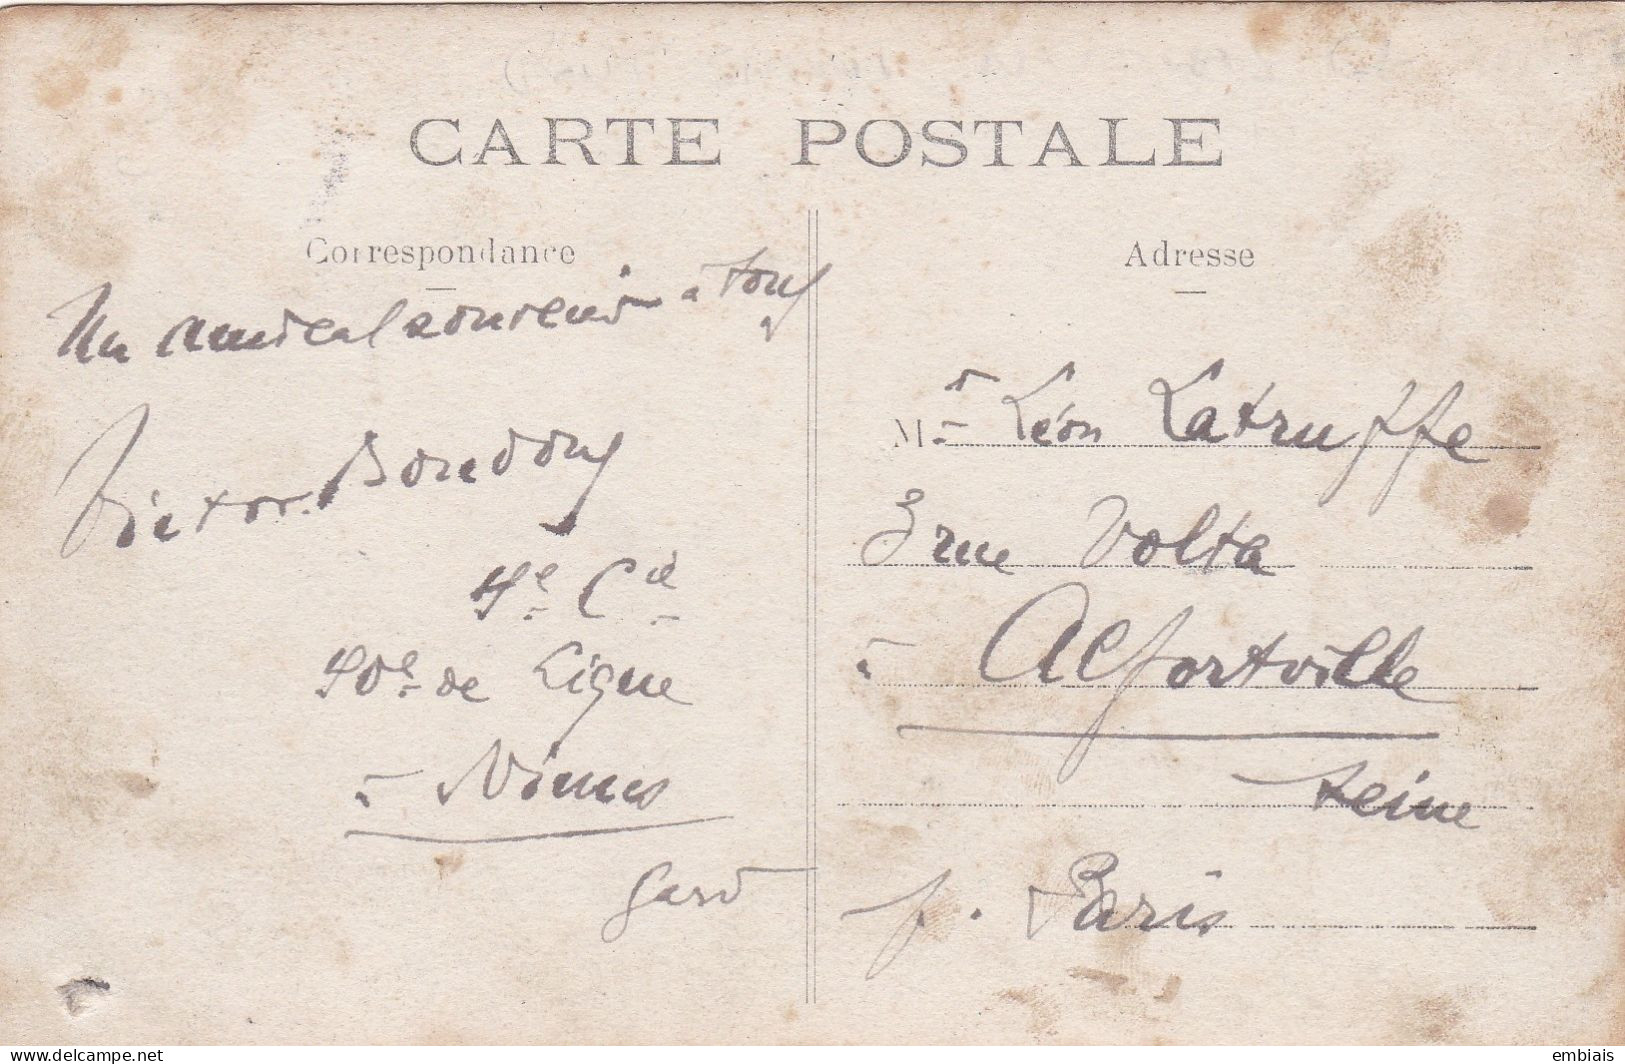 CARTE POSTALE
Correspondance
Un amical souvenir à tous
Victor Boudoux
4e Cie
40e de Ligne
à Nimes
Gard
Adresse
Mr Léon Latruffe
3 rue Volta
à Alfortville
Seine
p. Paris
Delcampe.net
embiais